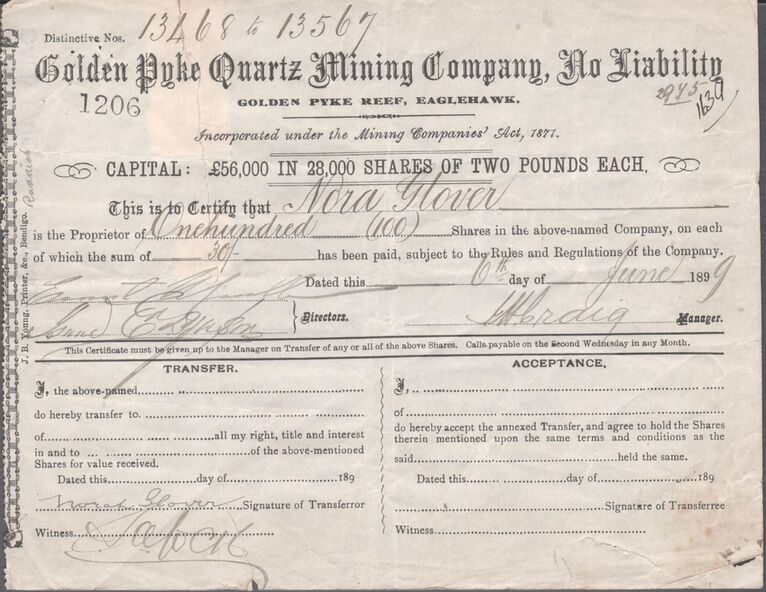 Distinctive Nos. 13468 to 13567
Golden Pyke Quartz Mining Company, No Liability
1206
GOLDEN PYKE REEF, EAGLEHAWK.
2975
1639
Incorporated under the Mining Companies' Act, 1871.
CAPITAL: £56,000 IN 28,000 SHARES OF TWO POUNDS EACH.
This is to Certify that Nora Glover
is the Proprietor of Onehundred (100) Shares in the above-named Company, on each
of which the sum of 30/- has been paid, subject to the Rules and Regulations of the Company.
Dated this 6th day of June 1899
Directors.
Manager.
J. B. Young, Printer, &c., Bendigo.
This Certificate must be given up to the Manager on Transfer of any or all of the above Shares. Calls payable on the Second Wednesday in any Month.
TRANSFER.
I, the above-named
do hereby transfer to
of all my right, title and interest
in and to of the above-mentioned
Shares for value received.
Dated this day of 189
Norah Glover Signature of Transferror
Witness
ACCEPTANCE,
I,
of
do hereby accept the annexed Transfer, and agree to hold the Shares
therein mentioned upon the same terms and conditions as the
said held the same.
Dated this day of 189
Signature of Transferree
Witness